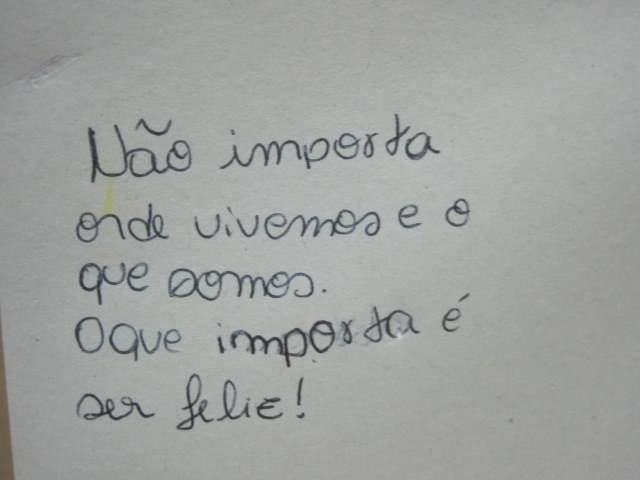 Não importa
onde vivemos e o
que somos.
Oque importa é
ser feliz!